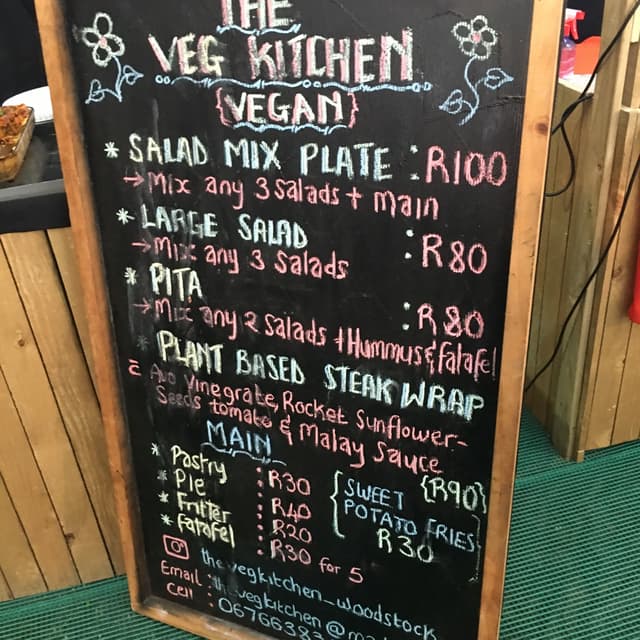 THE
VEG KITCHEN
{VEGAN}
* SALAD MIX PLATE : R100
→ Mix any 3 Salads + main
* LARGE SALAD : R80
→ Mix any 3 Salads
* PITA : R80
→ Mix any 2 Salads + Hummus & falafel
* PLANT BASED STEAK WRAP
Avo Vinegrate, Rocket Sunflower-
Seeds tomato & Malay Sauce
{R90}
MAIN
* Pastry : R30
* Pie : R40
* Fritter : R20
* Falafel : R30 for 5
{SWEET
POTATO FRIES}
R30
thevegkitchen_woodstock
Email : thevegkitchen@
Cell : 06766383